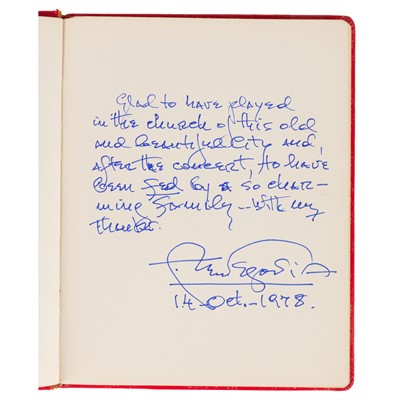 Glad to have played
in the church of this old
and beautiful city and,
after the concert, to have
been fed by a so char-
ming family – with my
thanks.
Andres Segovia
14 Oct. – 1978.